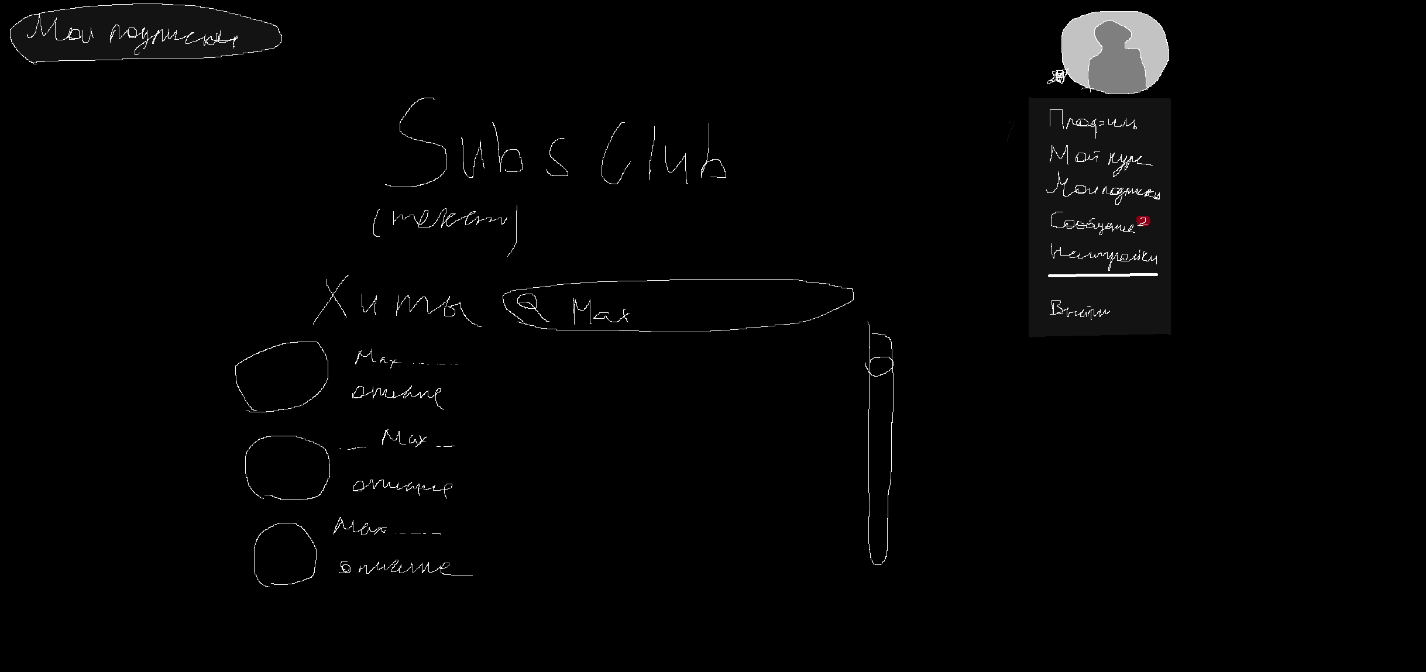 Мои подписки
Subs Club
(текст)
Хиты
Max
Max
описание
Max
описание
Max
описание
Профиль
Мой курс
Мои подписки
Сообщения 2
Настройки
Выйти